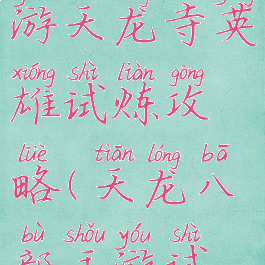 游天龙寺英
xióng shì liàn gòng
雄试炼攻
lüè tiān lóng bā
略(天龙八
bù shǒu yóu shì
部手游试